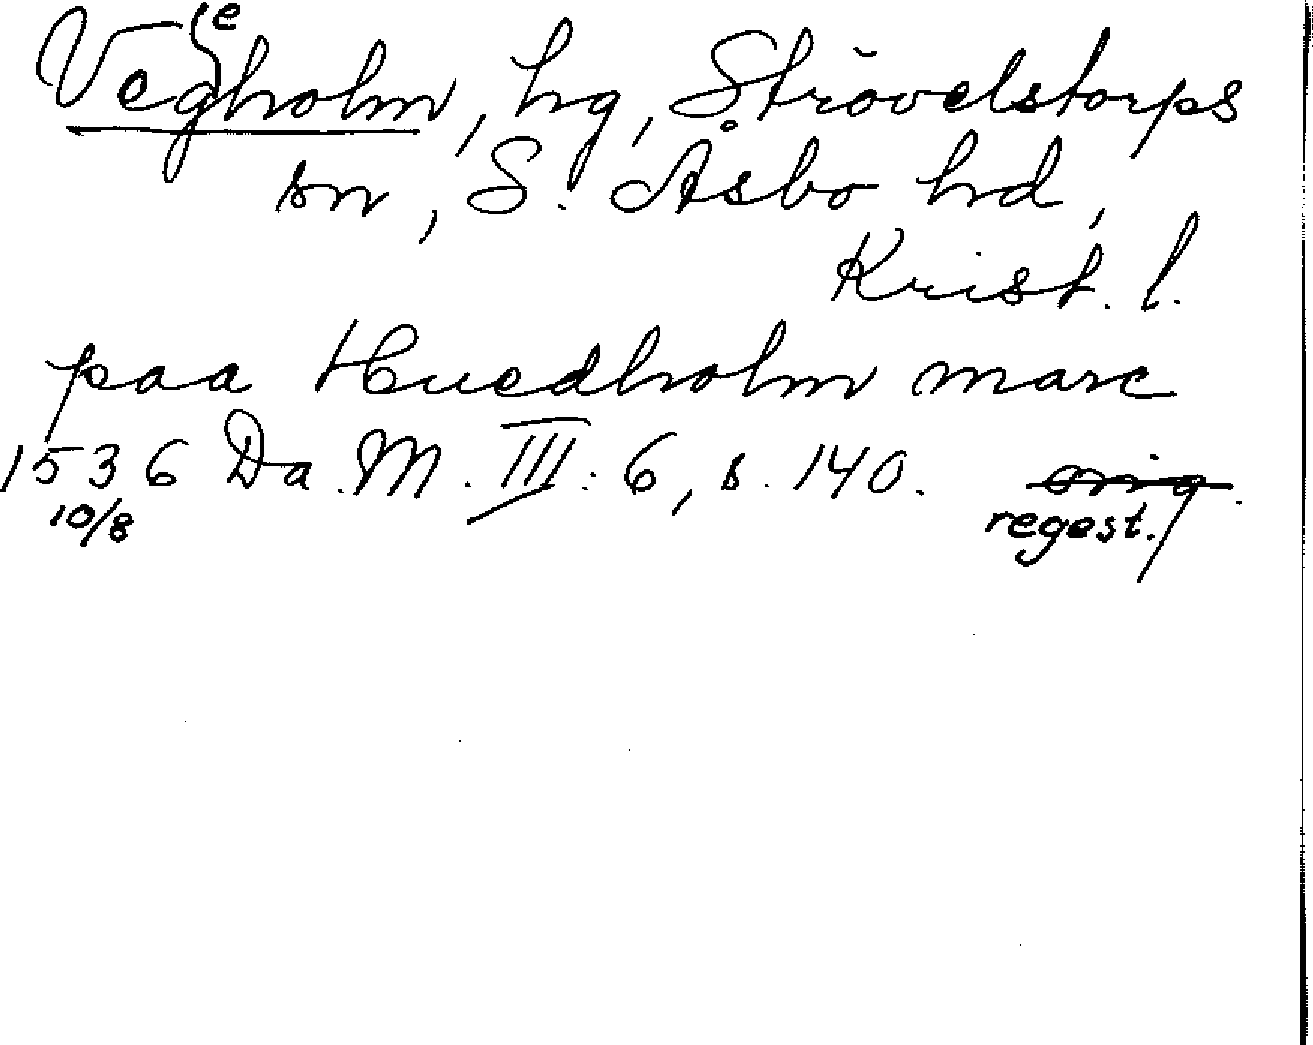 Vegeholm, hg, Strövelstorps
sn, S. Åsbo hd,
Krist. l.
paa Huedholm marc
1536 Da. M. III: 6, s. 140. orig.
10/8 regest.